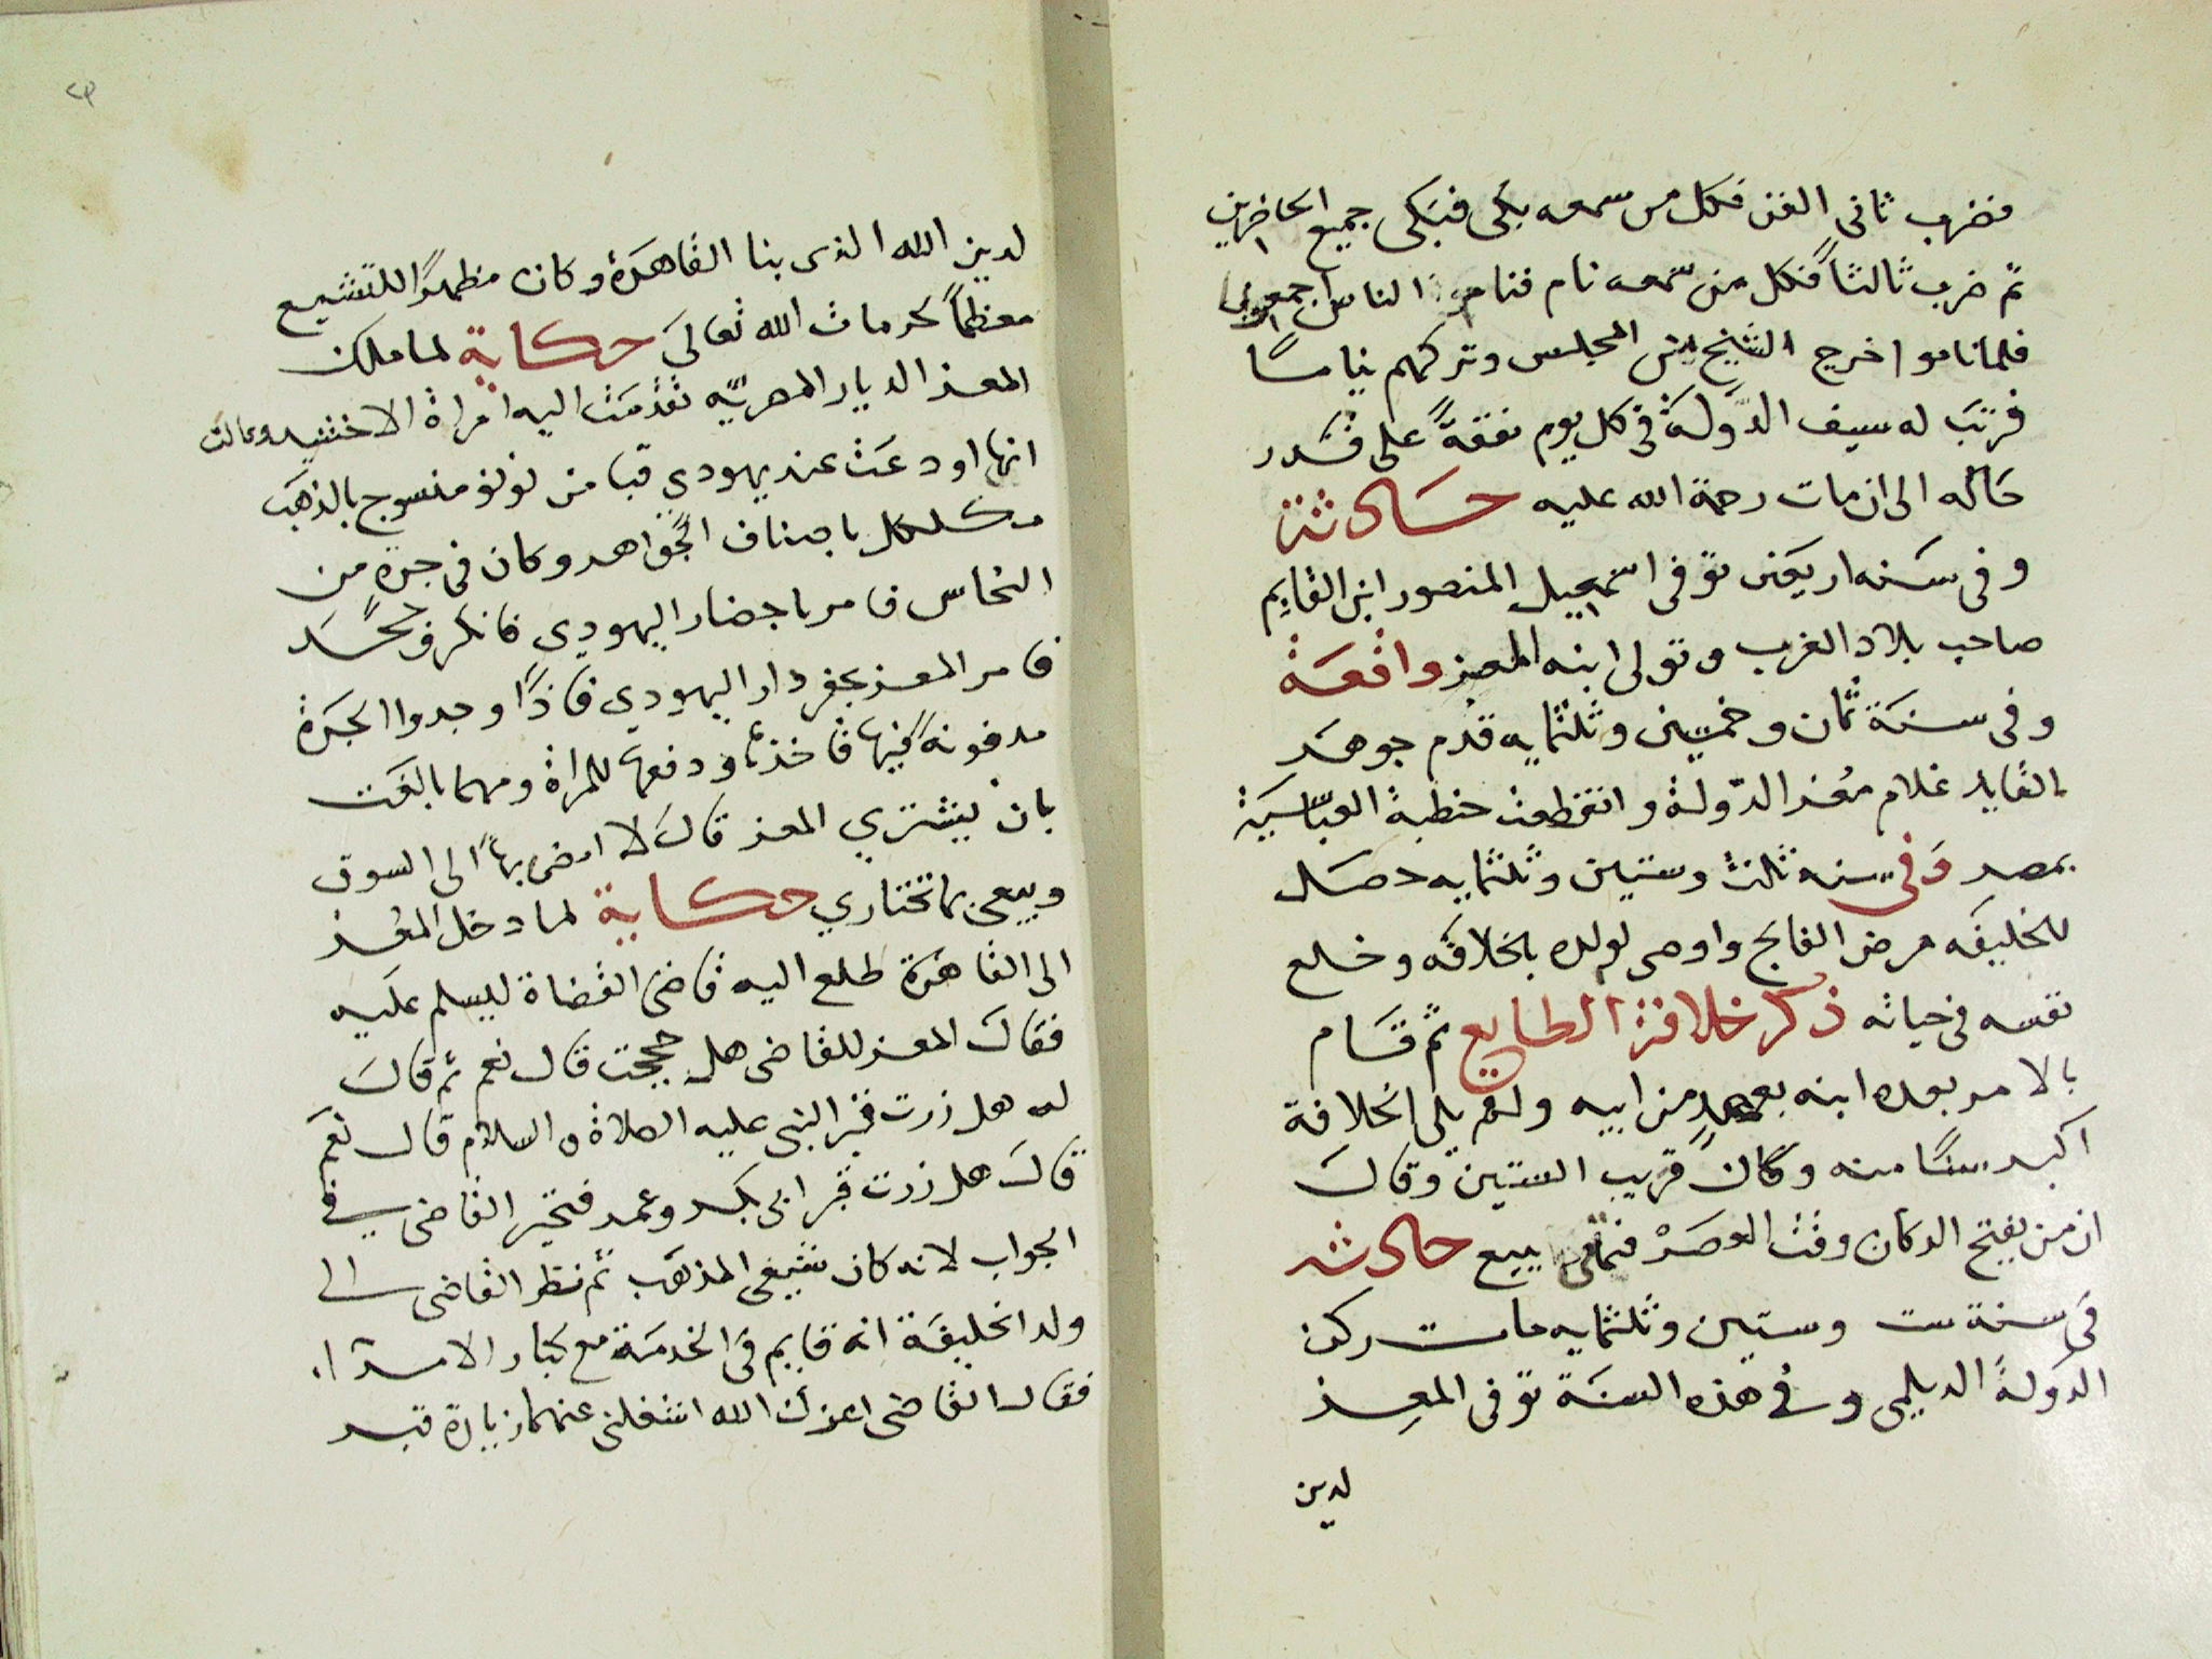 فضرب ثانى الفن فكل من سمعه بكى فبكى جميع الحاضرين
ثم ضرب ثالثاً فكل من سمعه نام فنام الناس اجمعون
فلما ناموا خرج الشيخ من المجلس وتركهم نياما
فرتب له سيف الدولة فى كل يوم نفقةً على قدر
حاله الى ان مات رحمة الله عليه حادثة
وفى سنه اربعين توفى اسمعيل المنصور ابن القايم
صاحب بلاد الغرب وتولى ابنه المعز واقعة
وفى سنة ثمان وخمسين وثلثمايه قدم جوهر
القايد غلام معز الدولة وانقطعت خطبة العباسية
بمصر وفى سنه ثلث وستين وثلثمايه حصل
للخليفه مرض الفالج واوصى لولده بالخلافه وخلع
نفسه فى حياته ذكر خلافة الطايع ثم قام
بالامر بعده ابنه بعهد من ابيه ولم يلى الخلافة
اكبر سنًا منه وكان قريب الستين وقال
ان من يفتح الدكان وقت العصر فمتى يبيع حادثه
فى سنة ست وستين وثلثمايه مات ركن
الدولة الديلمى وفى هذه السنة توفى المعز
لدين
٢٩
لدين الله الذى بنا القاهرة وكان مظهرًا للتشيع
معظماً لحرمات الله تعالى حكاية لما ملك
المعز الديار المصريه تقدمت اليه امراة الاخشيد وقالت
انها اودعت عند يهودي قبا من لولو منسوج بالذهب
مكلكل باصناف الجواهر وكان فى جرة من
النحاس فامر باحضار اليهودي فانكر وجحد
فامر المعز بحفر دار اليهودي فاذا وجدوا الجرة
مدفونة فيها فاخذها ودفعها للمراة ومهما بالغت
بان يشتري المعز قال لا امضى بها الى السوق
وبيعى بما تختاري حكاية لما دخل المعز
الى القاهرة طلع اليه قاضى القضاة ليسلم عليه
فقال المعز للقاضى هل حججت قال نعم ثم قال
له هل زرت قبر النبى عليه الصلاة والسلام قال نعم
قال هل زرت قبر ابى بكر وعمر فتحير القاضى فى
الجواب لانه كان شيعى المذهب ثم نظر القاضى الى
ولد الخليفة انه قايم فى الخدمة مع كبار الامرا
فقال القاضى اعزك الله اشغلنى عنهما زيارة قبر